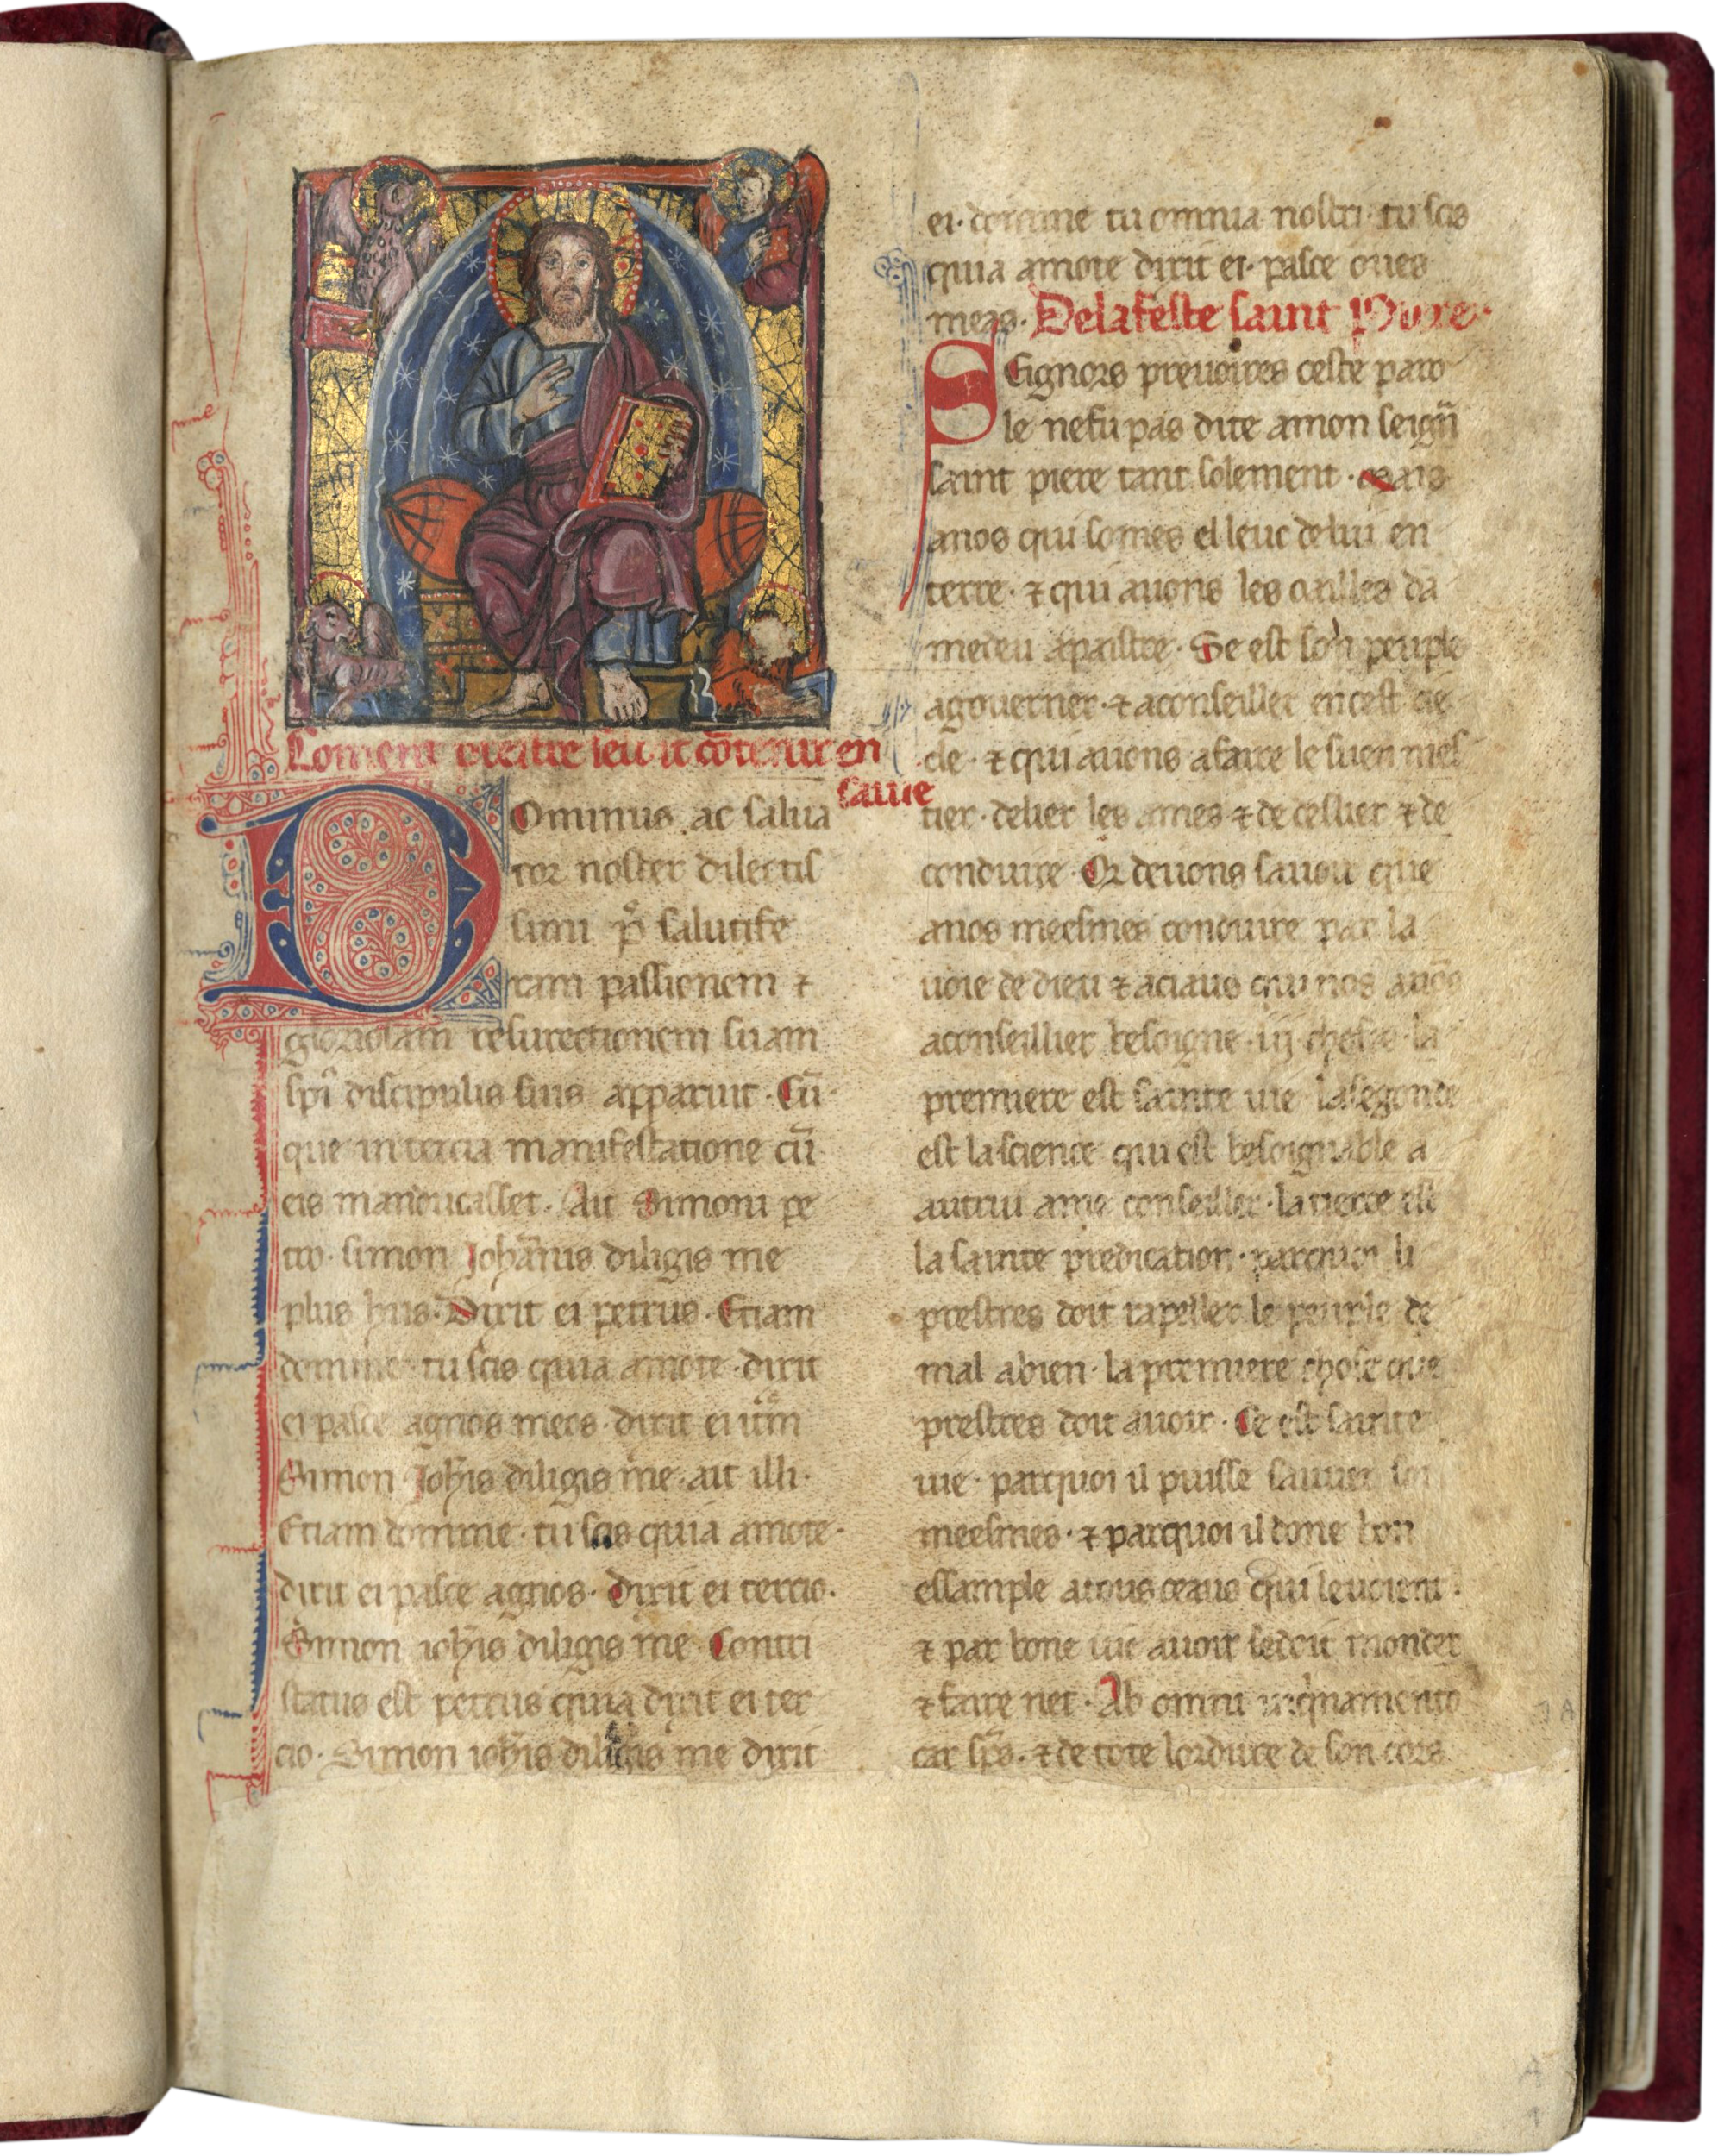 Coment prestre seuit cōtenir en
saiue
Ominus ac salua
tor noster dilectis
simi p̄ salutife
ram passionem ⁊
gloriosam resurectionem suam
sp̄i discipulis suis apparuit. Cū
que in tercia manifestatione cū
eis manducasset. Ait Simoni pe
tro. simon Johānis diligis me
plus hiis. Dixit ei petrus. Etiam
domine. tu scis quia amo te. dixit
ei pasce agnos meos. dixit ei itm̄
Simon Joh̄is diligis me. ait illi.
Etiam domine. tu scis quia amo te.
dixit ei pasce agnos. Dixit ei tercio.
Simon ioh̄is diligis me. Contri
status est petrus quia dixit ei ter
cio. Simon ioh̄is diligis me dixit
ei. domine tu omnia nosti. tu scis
quia amo te dixit ei. pasce oues
meas. De la feste saint Piere.
Signors preuoires ceste paro
le ne fu pas dite a mon seign̄
saint piere tant solement. mais
a nos qui somes el leuc de lui en
terre. ⁊ qui auons les oailles da
medeu a paistre. Se est son peuple
a gouerner. ⁊ a conseillier en cest sie
cle. ⁊ qui auons a faire le suen mes
tier. de lier les ames ⁊ de deslier ⁊ de
conduire. Or deuons sauoir que
a nos meesmes conduire par la
uoie de dieu ⁊ a ciaus qui nos auōs
a conseillier besoigne .iij. choses. la
premiere est sainte uie. la segonde
est la science qui est besoignable a
autrui ame conseillier. la tierce est
la sainte predication. par quoi li
prestres doit rapeller le peuple de
mal a bien. la premiere chose que
prestres doit auoir. Ce est sainte
uie. par quoi il puisse sauuer soi
meesmes. ⁊ par quoi il done bon
essample a tous ceaus qui le uoient.
⁊ par bone uie auoir se doit monder
⁊ faire net. Ab omni inquinamento
car. sp̄s. ⁊ de tote lordure de son cors